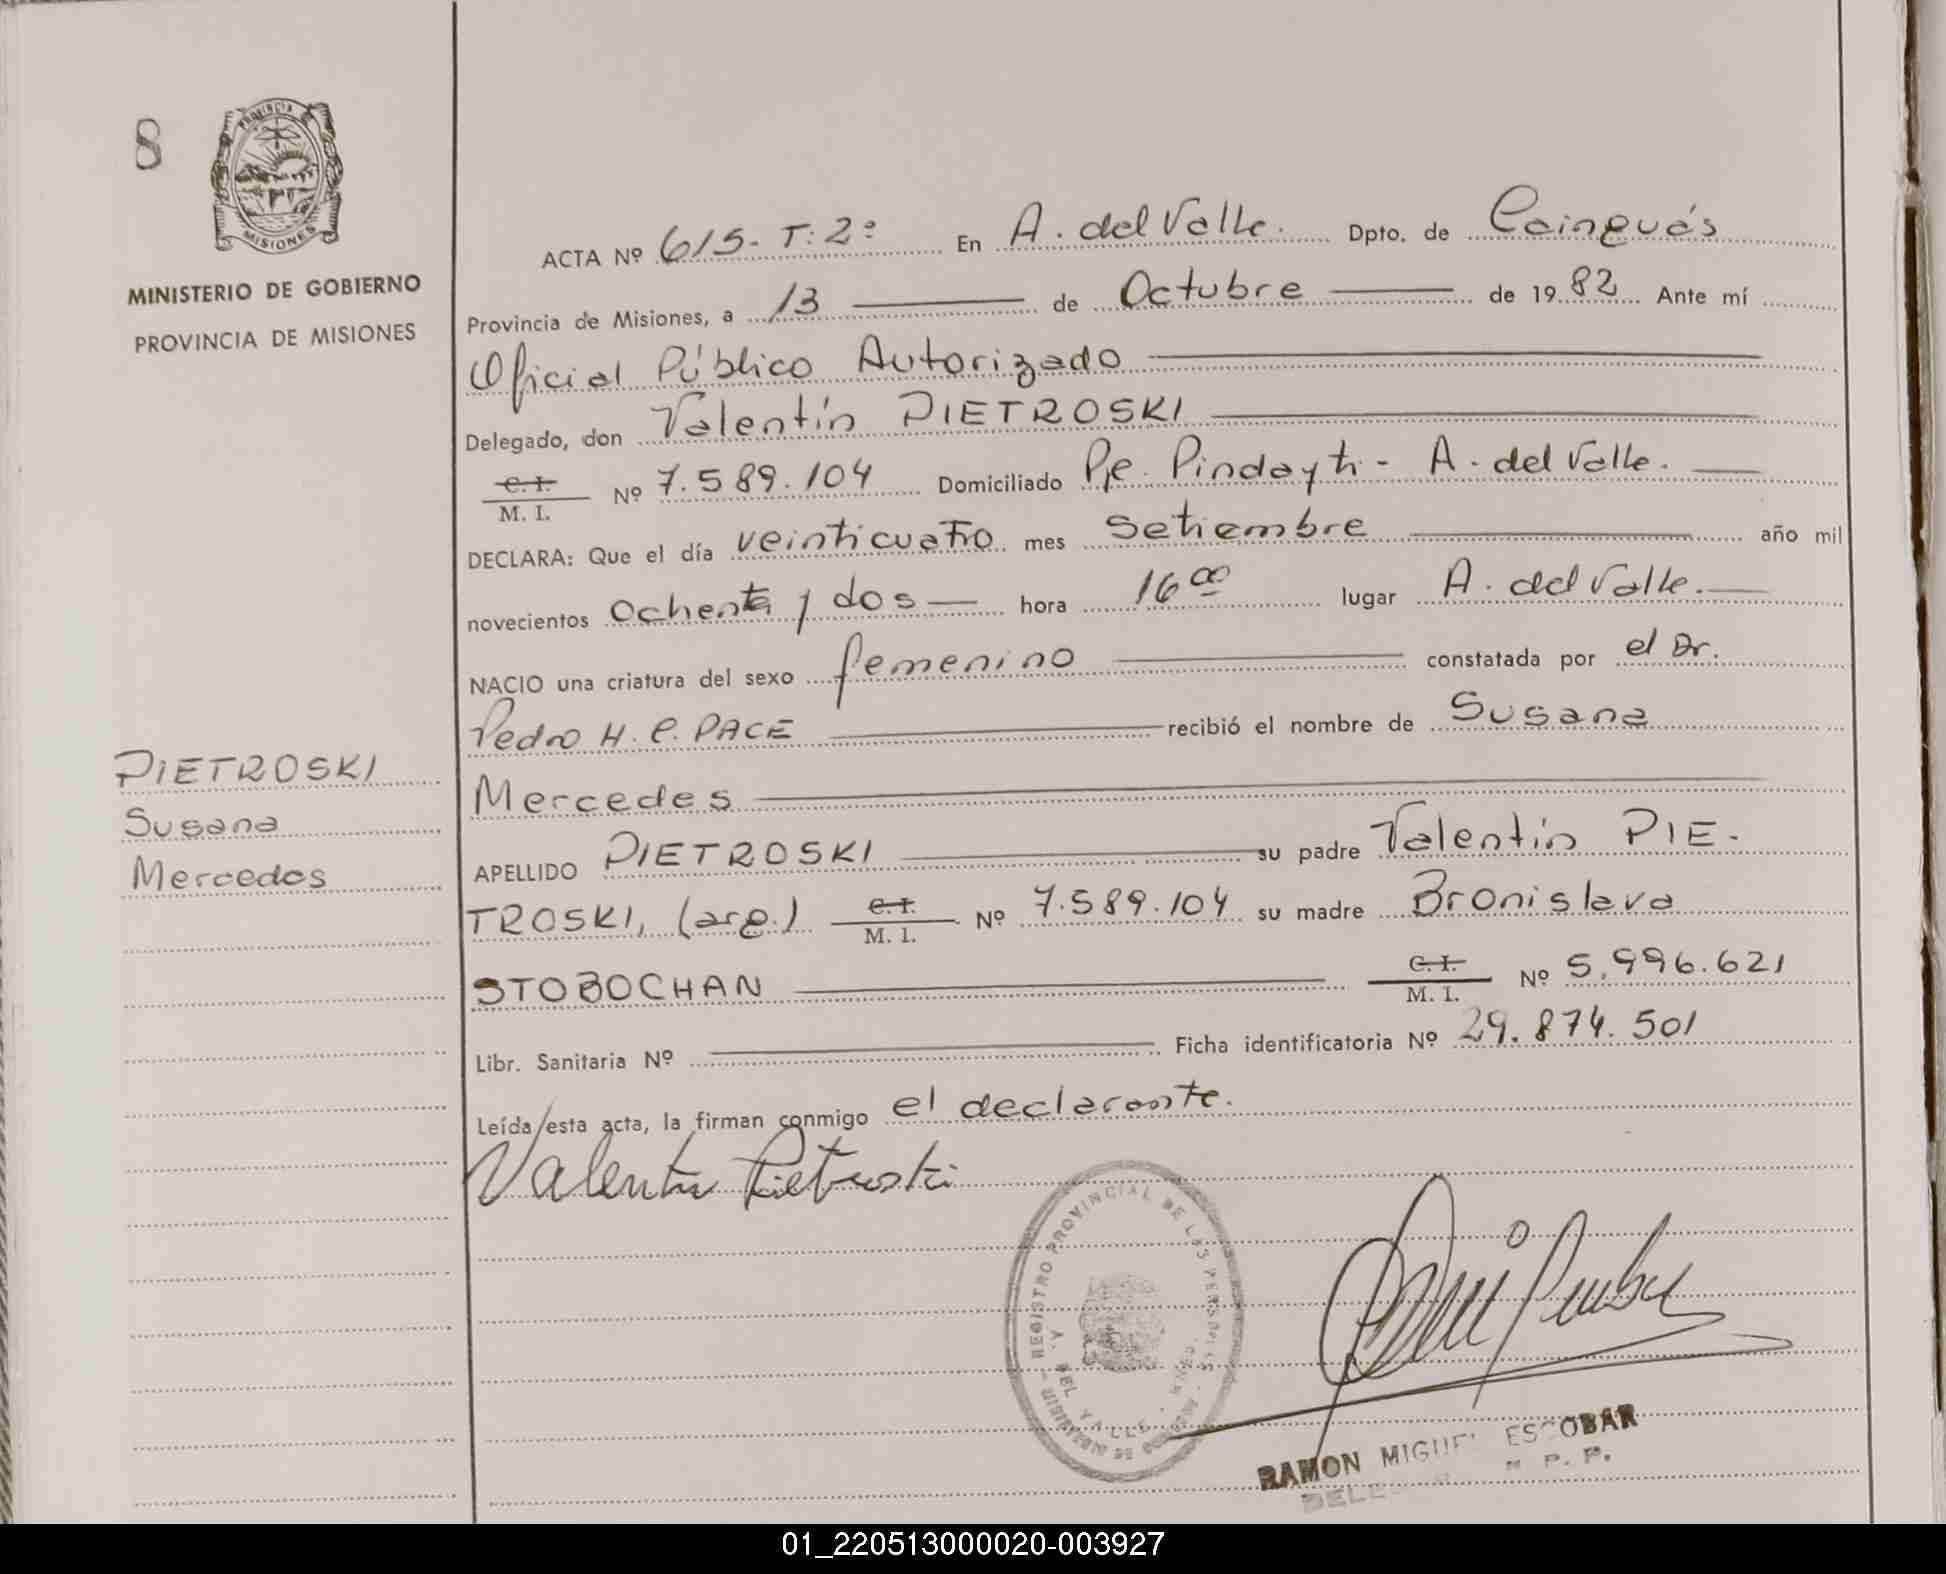 8
PROVINCIA
MISIONES
MINISTERIO DE GOBIERNO
PROVINCIA DE MISIONES
PIETROSKI
Susana
Mercedes
ACTA Nº 615- T: 2º En A. del Valle. Dpto. de Cainguás
Provincia de Misiones, a 13 de Octubre de 1982 Ante mí
Oficial Público Autorizado
Delegado, don Valentín PIETROSKI
C. I. M. I. Nº 7.589.104 Domiciliado Pje. Pindayti - A. del Valle.
DECLARA: Que el día veinticuatro mes Setiembre año mil
novecientos ochenta y dos hora 16 00 lugar A. del Valle.
NACIO una criatura del sexo femenino constatada por el Dr.
Pedro H. C. PACE recibió el nombre de Susana
Mercedes
APELLIDO PIETROSKI su padre Valentín PIE-
TROSKI, (arg.) C. I. M. I. Nº 7.589.104 su madre Bronislava
STOBOCHAN C. I. M. I. Nº 5.996.621
Libr. Sanitaria Nº Ficha identificatoria Nº 29.874.501
Leída esta acta, la firman conmigo el declarante.
Valentin Pietroski
REGISTRO PROVINCIAL DE LAS PERSONAS
DEL VALLE
RAMON MIGUEL ESCOBAR
01_220513000020-003927